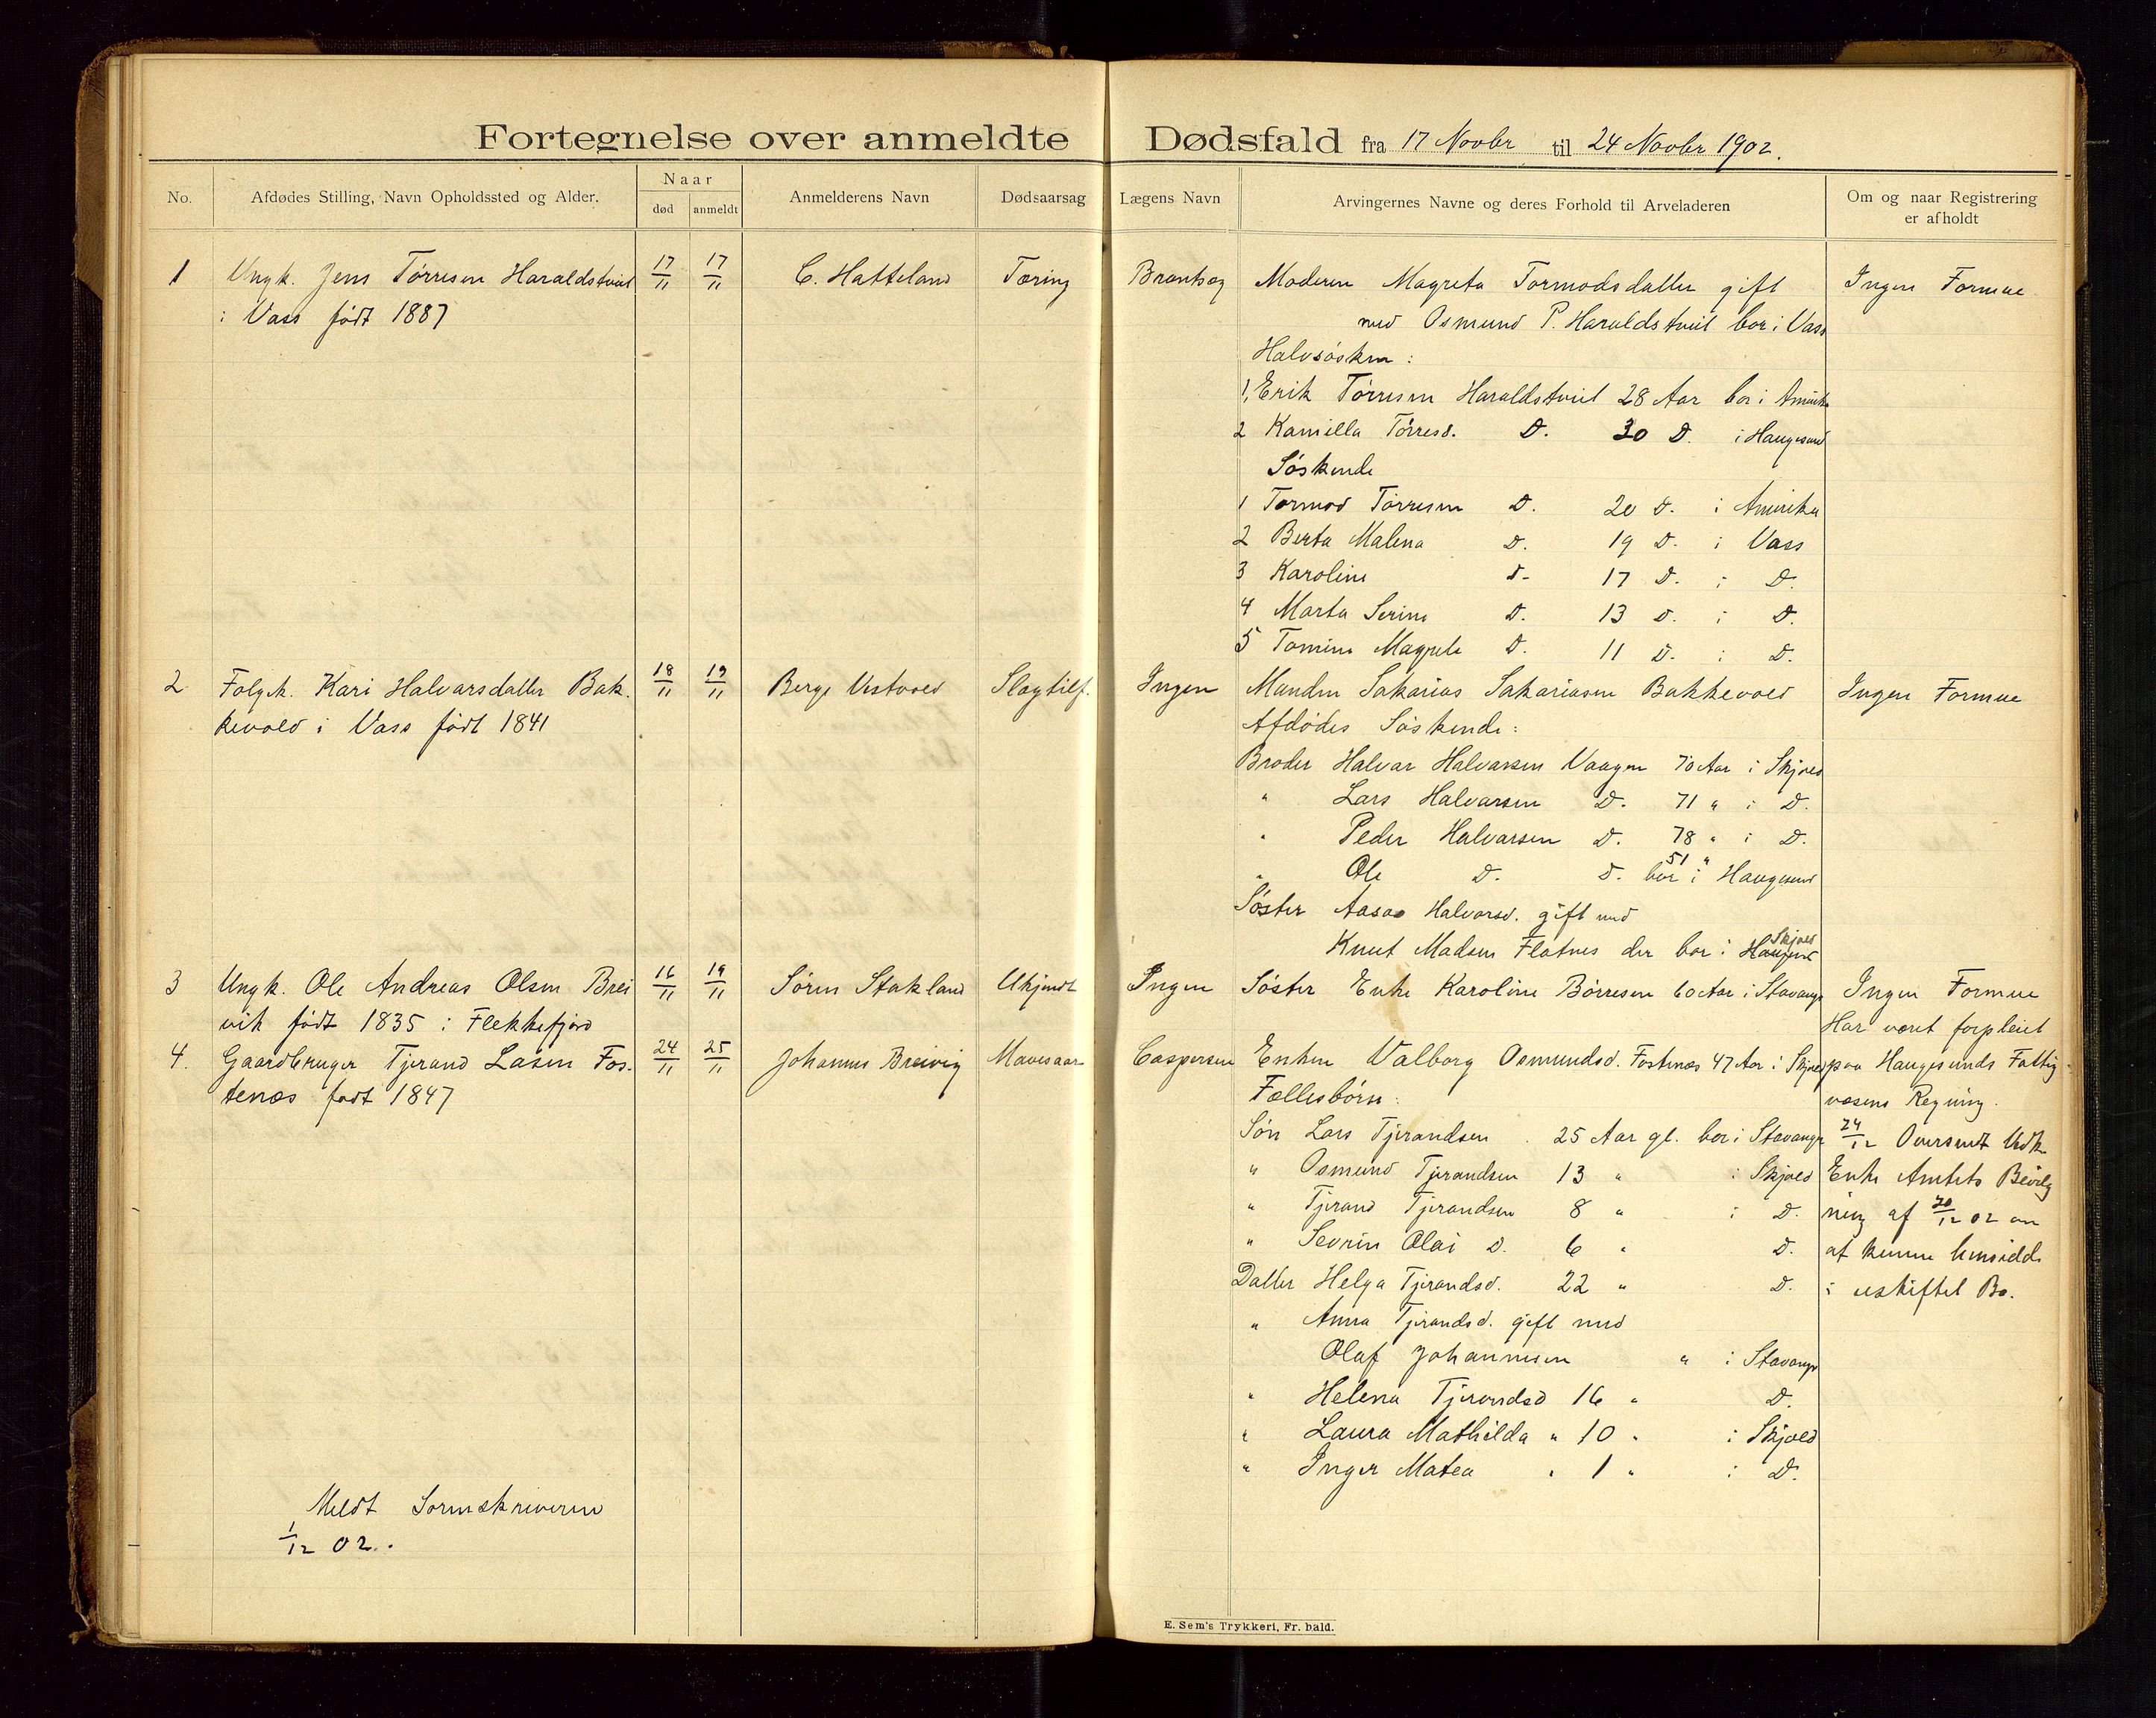 Fortegnelse over anmeldte Dødsfald fra 17 Novbr til 24 Novbr 1902.
No.
Afdødes Stilling, Navn Opholdssted og Alder.
Naar
død
anmeldt
Anmelderens Navn
Dødsaarsag
Lægens Navn
Arvingernes Navne og deres Forhold til Arveladeren
Om og naar Registrering
er afholdt
1 Ungk. Jens Tørresen Haraldstveit 17/11 17/11 C. Hatteland Tæring
i Vass født 1887
2 Folgek. Kari Halvarsdatter Bak- 18/11 19/11 Berge Vestvold Slagtilf.
kevold i Vass født 1841
3 Ungk. Ole Andreas Olsen Brei 16/11 19/11 Søren Stakland Ukjendt
vik født 1835 i Flekkefjord
4. Gaardbruger Tjerand Lasen Fos- 24/11 25/11 Johannes Breivig Mavesaar
tenæs født 1847
Meldt Sorenskriveren
1/12 02.
Moderen Magreta Tormodsdatter gift Ingen Formue
med Osmund P. Haraldstveit bor i Vass
Halvsøsken:
1, Erik Tørresen Haraldstveit 28 Aar bor i Amerika
2 Kamilla Tørresd. D. 30 D. i Haugesund
Søskende
1 Tormod Tørresen D. 20 D. i Amerika
2 Berta Malena D. 19 D. i Vass
3 Karoline D. 17 D. i D.
4 Marta Serine D. 13 D. i D.
5 Tomine Magrete D. 11 D. i D.
Ingen Manden Sakarias Sakariasen Bakkevold Ingen Formue
Afdødes Søskende:
Broder Halvar Halvarsen Vaagen 70 Aar i Skjold
" Lars Halvarsen D. 71 " i D.
" Peder Halvarsen D. 78 " i D.
" Ole D. D. 51 " bor i Haugesund
Søster Aasa Halvarsd. gift med
Knut Madsen Flatnes der bor i Haugesund Skjold
Ingen Søster Enke Karoline Børresen 60 Aar i Stavanger Ingen Formue
Har været forpleiet
Caspersen Enken Valborg Osmundsd. Fostenæs 47 Aar i Skjold paa Haugesunds Fattig
Fællesbørn: væsens Regning.
Søn Lars Tjerandsen 25 Aar gl. bor i Stavanger 24/12 Oversendt Udk.
" Osmund Tjerandsen 13 " i Skjold Enke Amtets Bevilg
" Tjerand Tjerandsen 8 " i D. ning af 20/12 02 om
" Sevrin Olai D. 6 " D. at kunne hensidde
Datter Helga Tjerandsd. 22 " D. i uskiftet Bo.
" Anna Tjerandsd. gift med
Olaf Johannesen " i Stavanger
" Helena Tjerandsd 16 " D.
" Laura Mathilda " 10 " i Skjold
" Inger Matea " 1 " i D.
E. Sem's Trykkeri, Fr. hald.